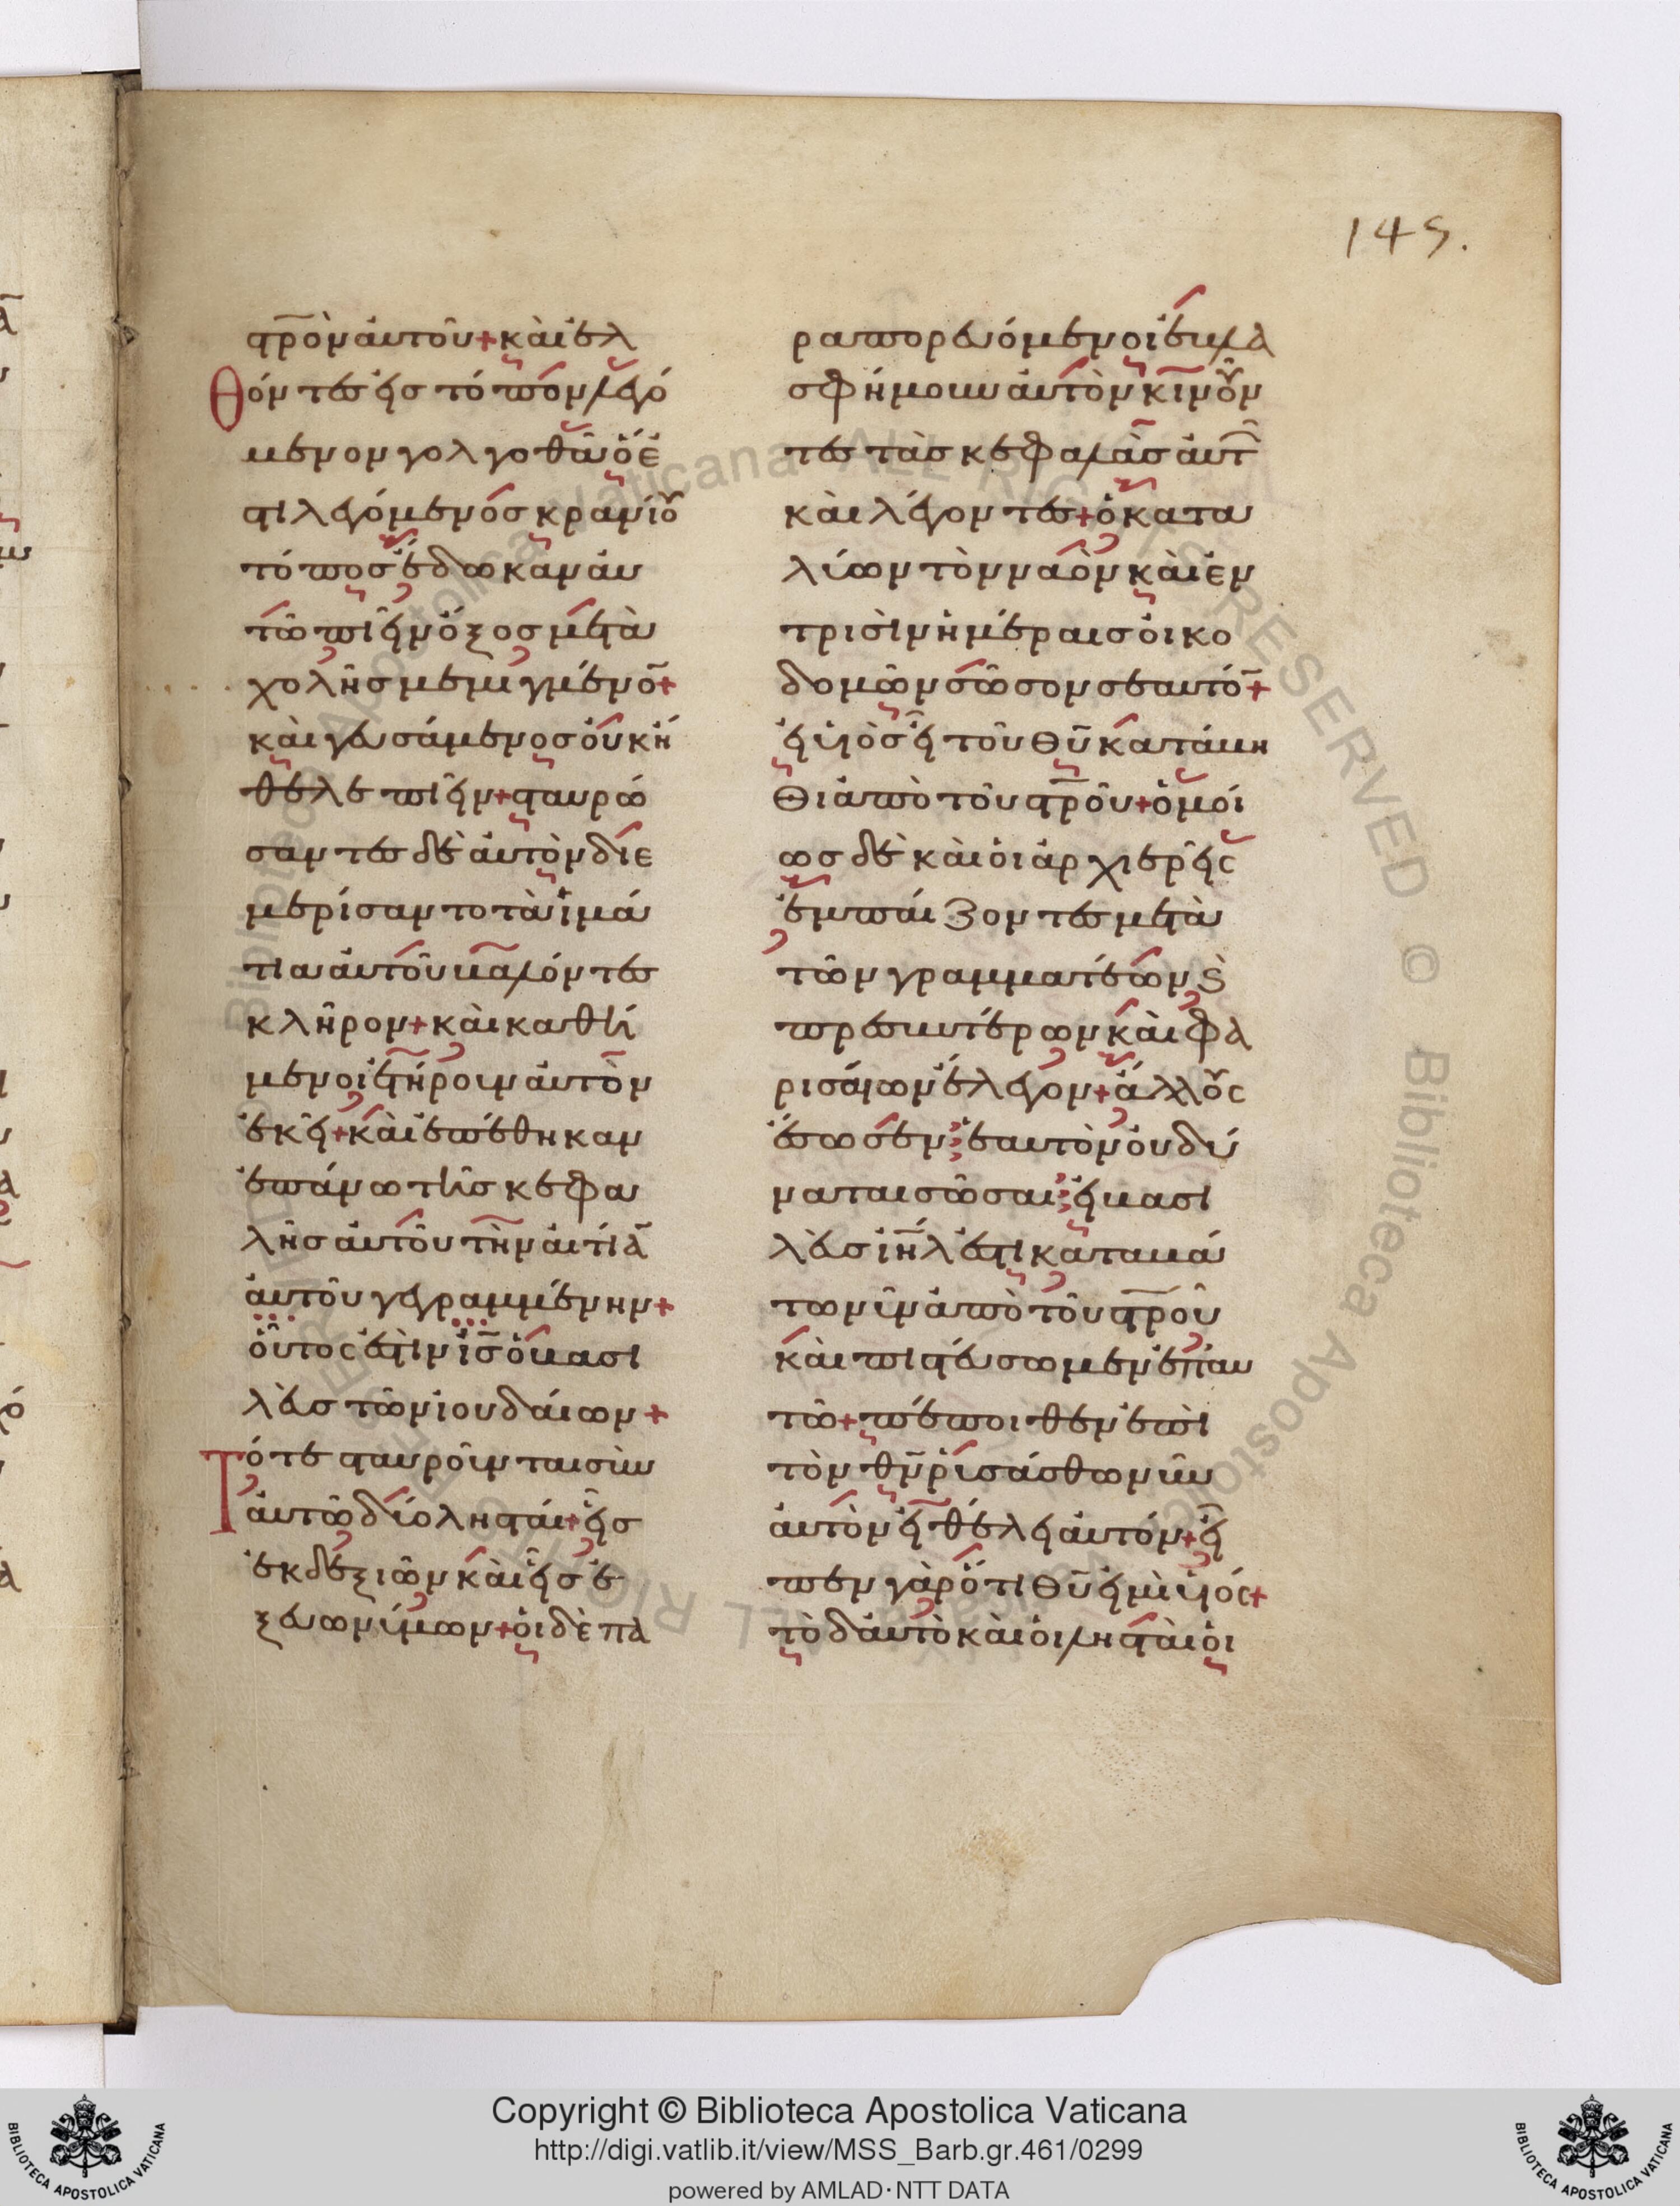 145.
στ̅ρὸν ἀυτοῦ + κὰι ἐλ
Θόντες ἐισ τόπον λεγό
μενον γολγοθᾶ ὅ ἐ
στι λεγόμενος κρανίου
τόπος ἔδωκαν ἀυ
τῶ πιεῖν ὄξος μετὰ
χολῆσ μεμιγμένο̅ +
κὰι γευσάμενος ὀυκ ἤ
θελε πιεῖν + σταυρώ
σαντες δὲ ἀυτὸν διε
μερίσαντο τὰ ἱμά
τια ἀυτοῦ βαλόντες
κλῆρον + κὰι καθή
μενοι ἐτήρουν ἀυτὸν
ἐκεῖ + κὰι ἐπέθηκαν
ἐπάνω τῆσ κεφα
λῆσ ἀυτοῦ τὴν ἀιτία̅
ἀυτοῦ γεγραμμένην +
οὗτος ἐστιν ι̅σ̅ ὁ βασι
λεὺσ τῶν ἰουδάιων +
Τότε σταυροῦνται σὺν
ἀυτῶ δύο λησταί + εἷσ
ἐκ δεξιῶν κὰι εἷσ ἐ
ξ ευωνύμων + ὁι δὲ πα
ραπορευόμενοι ἐβλα
σφήμουν ἀυτὸν κινοῦν
τες τὰσ κεφαλὰσ ἀυτ
κὰι λέγοντες + ὁ κατα
λύων τὸν ναὸν κὰι ἐν
τρισὶν ἡμέραισ ὀικο
δομῶν σῶσον σεαυτό̅ +
ἐι ὑιὸσ εἶ τοῦ θ̅υ̅ κατάβη
θι ἀπὸ τοῦ στ̅ροῦ + ὁμοί
ωσ δὲ κὰι ὁι ἀρχιερεῖς
ἐμπάιζοντες μετὰ
τῶν γραμματέων ϗ̀
πρεσβυτέρων κὰι φα
ρισάιων ἔλεγον + ἄλλους
ἔσωσεν ἑαυτὸν ὀυ δύ
ναται σῶσαι ἐι βασι
λεύσ ι̅η̅λ ἐστι καταβά
τω νῦν ἀπὸ τοῦ στ̅ροῦ
κὰι πιστέυσωμεν ἐπ ἀυ
τῶ + πέποιθεν ἐπὶ
τὸν θ̅ν̅ ῥυσάσθω νῦν
ἀυτὸν εἰ θέλει ἀυτόν + εἶ
πεν γὰρ ὅτι θ̅υ̅ ἐιμὶ ὑιός +
τὸ δ ἀυτὸ κὰι ὁι λησταὶ ὁι
Copyright © Biblioteca Apostolica Vaticana
http://digi.vatlib.it/view/MSS_Barb.gr.461/0299
powered by AMLAD·NTT DATA